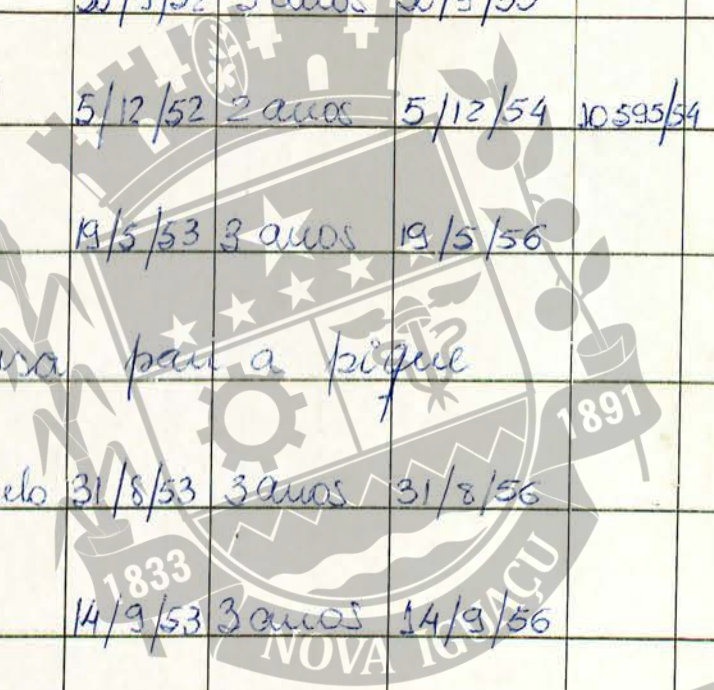 3 anos
5/12/52 2 anos 5/12/54 10595/54
19/5/53 3 anos 19/5/56
pau a pique
31/8/53 3 anos 31/8/56
14/9/53 3 anos 14/9/56
1891
1833
NOVA IGUAÇU